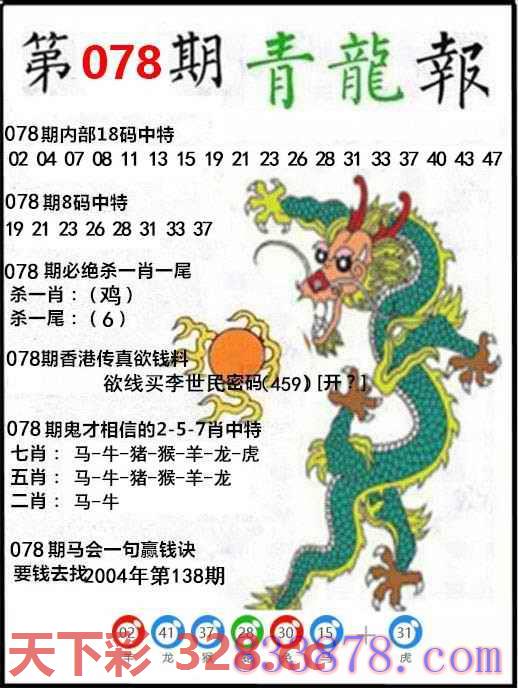 第078期青龍報
078期内部18码中特
02 04 07 08 11 13 15 19 21 23 26 28 31 33 37 40 43 47
078期8码中特
19 21 23 26 28 31 33 37
078期必绝杀一肖一尾
杀一肖：（鸡）
杀一尾：（6）
078期香港传真欲钱料
欲线买李世民密码(459)[开?]
078期鬼才相信的2-5-7肖中特
七肖：马-牛-猪-猴-羊-龙-虎
五肖：马-牛-猪-羊-龙
二肖：马-牛
078期马会一句赢钱诀
要钱去找2004年第138期
02 41 37 28 30 15 + 31
羊 龙 猴 马 虎
天下彩 32833878.com